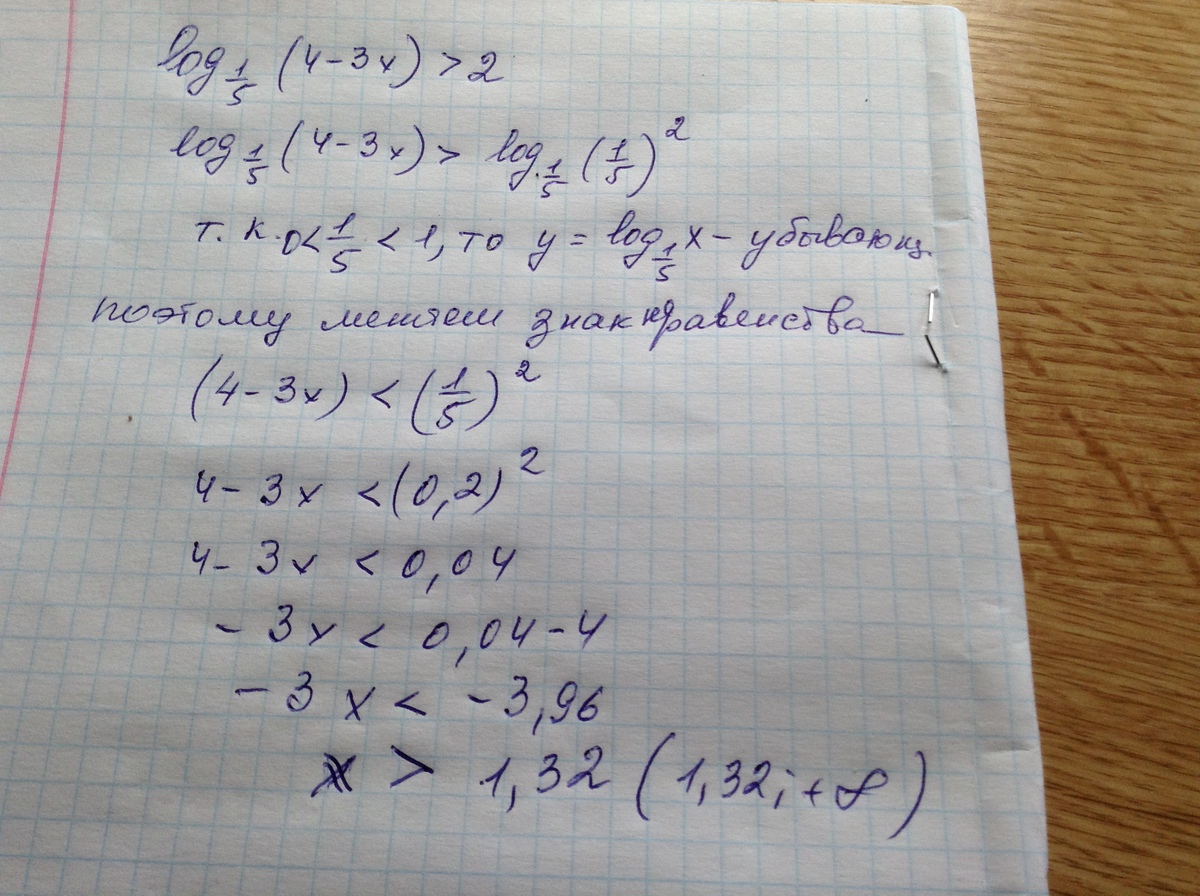 log_{1/5} (4-3x) > 2
log_{1/5} (4-3x) > log_{1/5} (1/5)^2
т.к. 0 < 1/5 < 1, то y = log_{1/5} x - убывающ.
поэтому меняем знак неравенства
(4-3x) < (1/5)^2
4-3x < (0,2)^2
4-3x < 0,04
-3x < 0,04-4
-3x < -3,96
x > 1,32 (1,32; +∞)